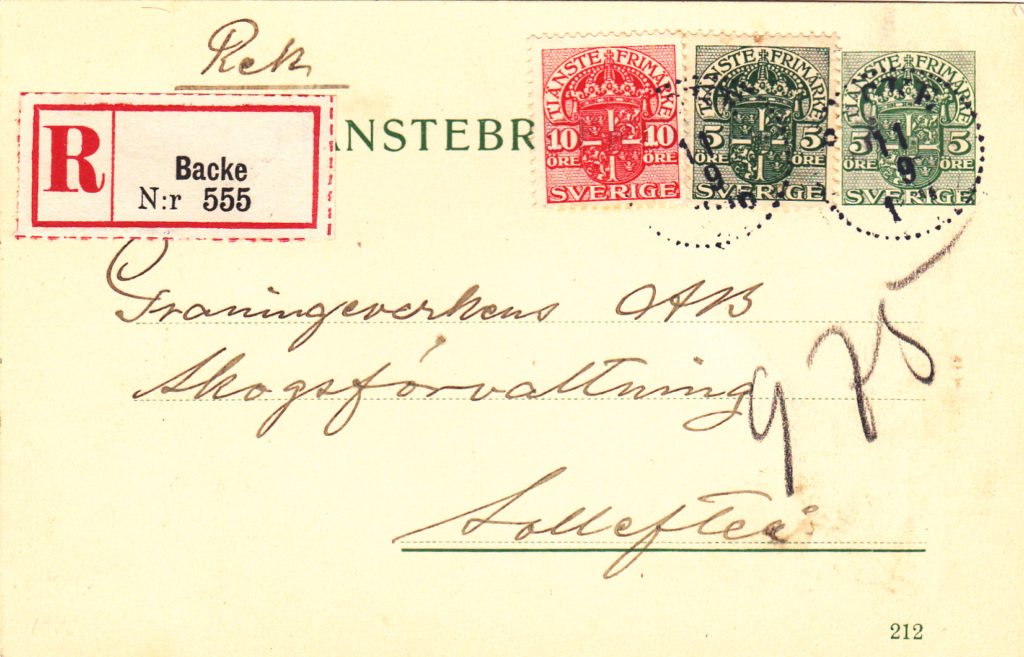 Rek
R
Backe
N:r 555
NSTEBR
TJÄNSTE FRIMÄRKE
10 10
ÖRE ÖRE
SVERIGE
TJÄNSTE FRIMÄRKE
5 5
ÖRE ÖRE
SVERIGE
TJÄNSTE FRIMÄRKE
5 5
ÖRE ÖRE
SVERIGE
11
9
11
9
1
Graningeverkens AB
Skogsförvaltning
Sollefteå
975
212